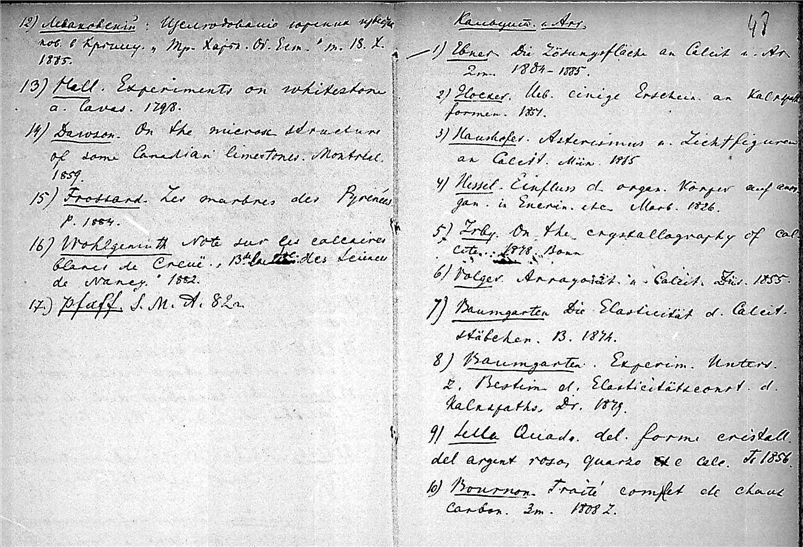 12) Леваковскій: Изслѣдованіе
нов. в Крыму. „Тр. Харьк. Об. Ест." т. 18. X.
1885.
13) Hall. Experiments on whitestone
a. lavas. 1798.
14) Dawson. On the microsc structure
of some Canadian limestones. Montreal.
1859.
15) Frossard. Les marbres des Pyrénées
P. 1884.
16) Wohlgemuth Note sur les calcaires
blancs de Creuë. des Sciences
de Nancy." 1882.
17) Pfaff. S. M. A. 82
Кальцит и Ar.
48
1) Ebner Die Lösungsfläche an Calcit u. Ar.
2 m. 1884-1885.
2) Hocker. Ueb. einige Erschein. an Kalkspath
formen. 1851.
3) Haushofer. Asterismus u. Lichtfiguren
an Calcit. Mün. 1865
4) Hessel. Einfluss d. organ. Körper auf anor
gan. in Encrin. etc Marb. 1826.
5) Irby. On the crystallography of cal
cite. 1878 Bonn
6) Volger Arragonit u. Calcit. Züs. 1855.
7) Baumgarten Die Elasticität d. Calcit.
stäbchen. B. 1874.
8) Baumgarten. Experim. Unters.
z. Bestim d. Elasticitätsconst. d.
Kalkspaths. Dr. 1879.
9) Sella Quadr. del. forme cristall.
del argent rosso, quarzo e calc. To 1856.
10) Bournon. Traité complet de chaux
carbon. 3 m. 1808 L.